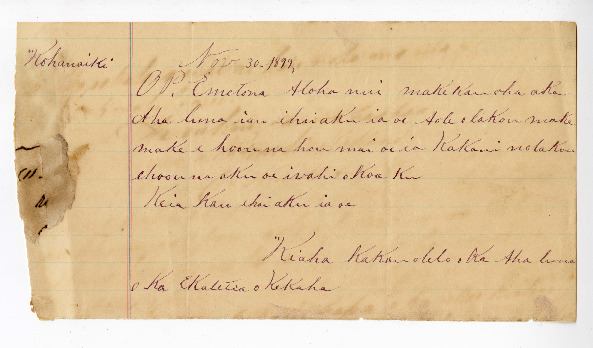 "Kohanaiki
Nov 30. 1899,
O P. Emetona Aloha nui make kau oha aka
Aha luna iau ihoi aku ia oe Aole olakou make
make e hoouna hou mai oe ia Kakani no lakou
ehoou na aku oe ivahi okoa Ku
Keia Kau ihoi aku ia oe
"Kiaha Kakauolelo o Ka Aha luna
o Ka Ekaletia o Kekaha